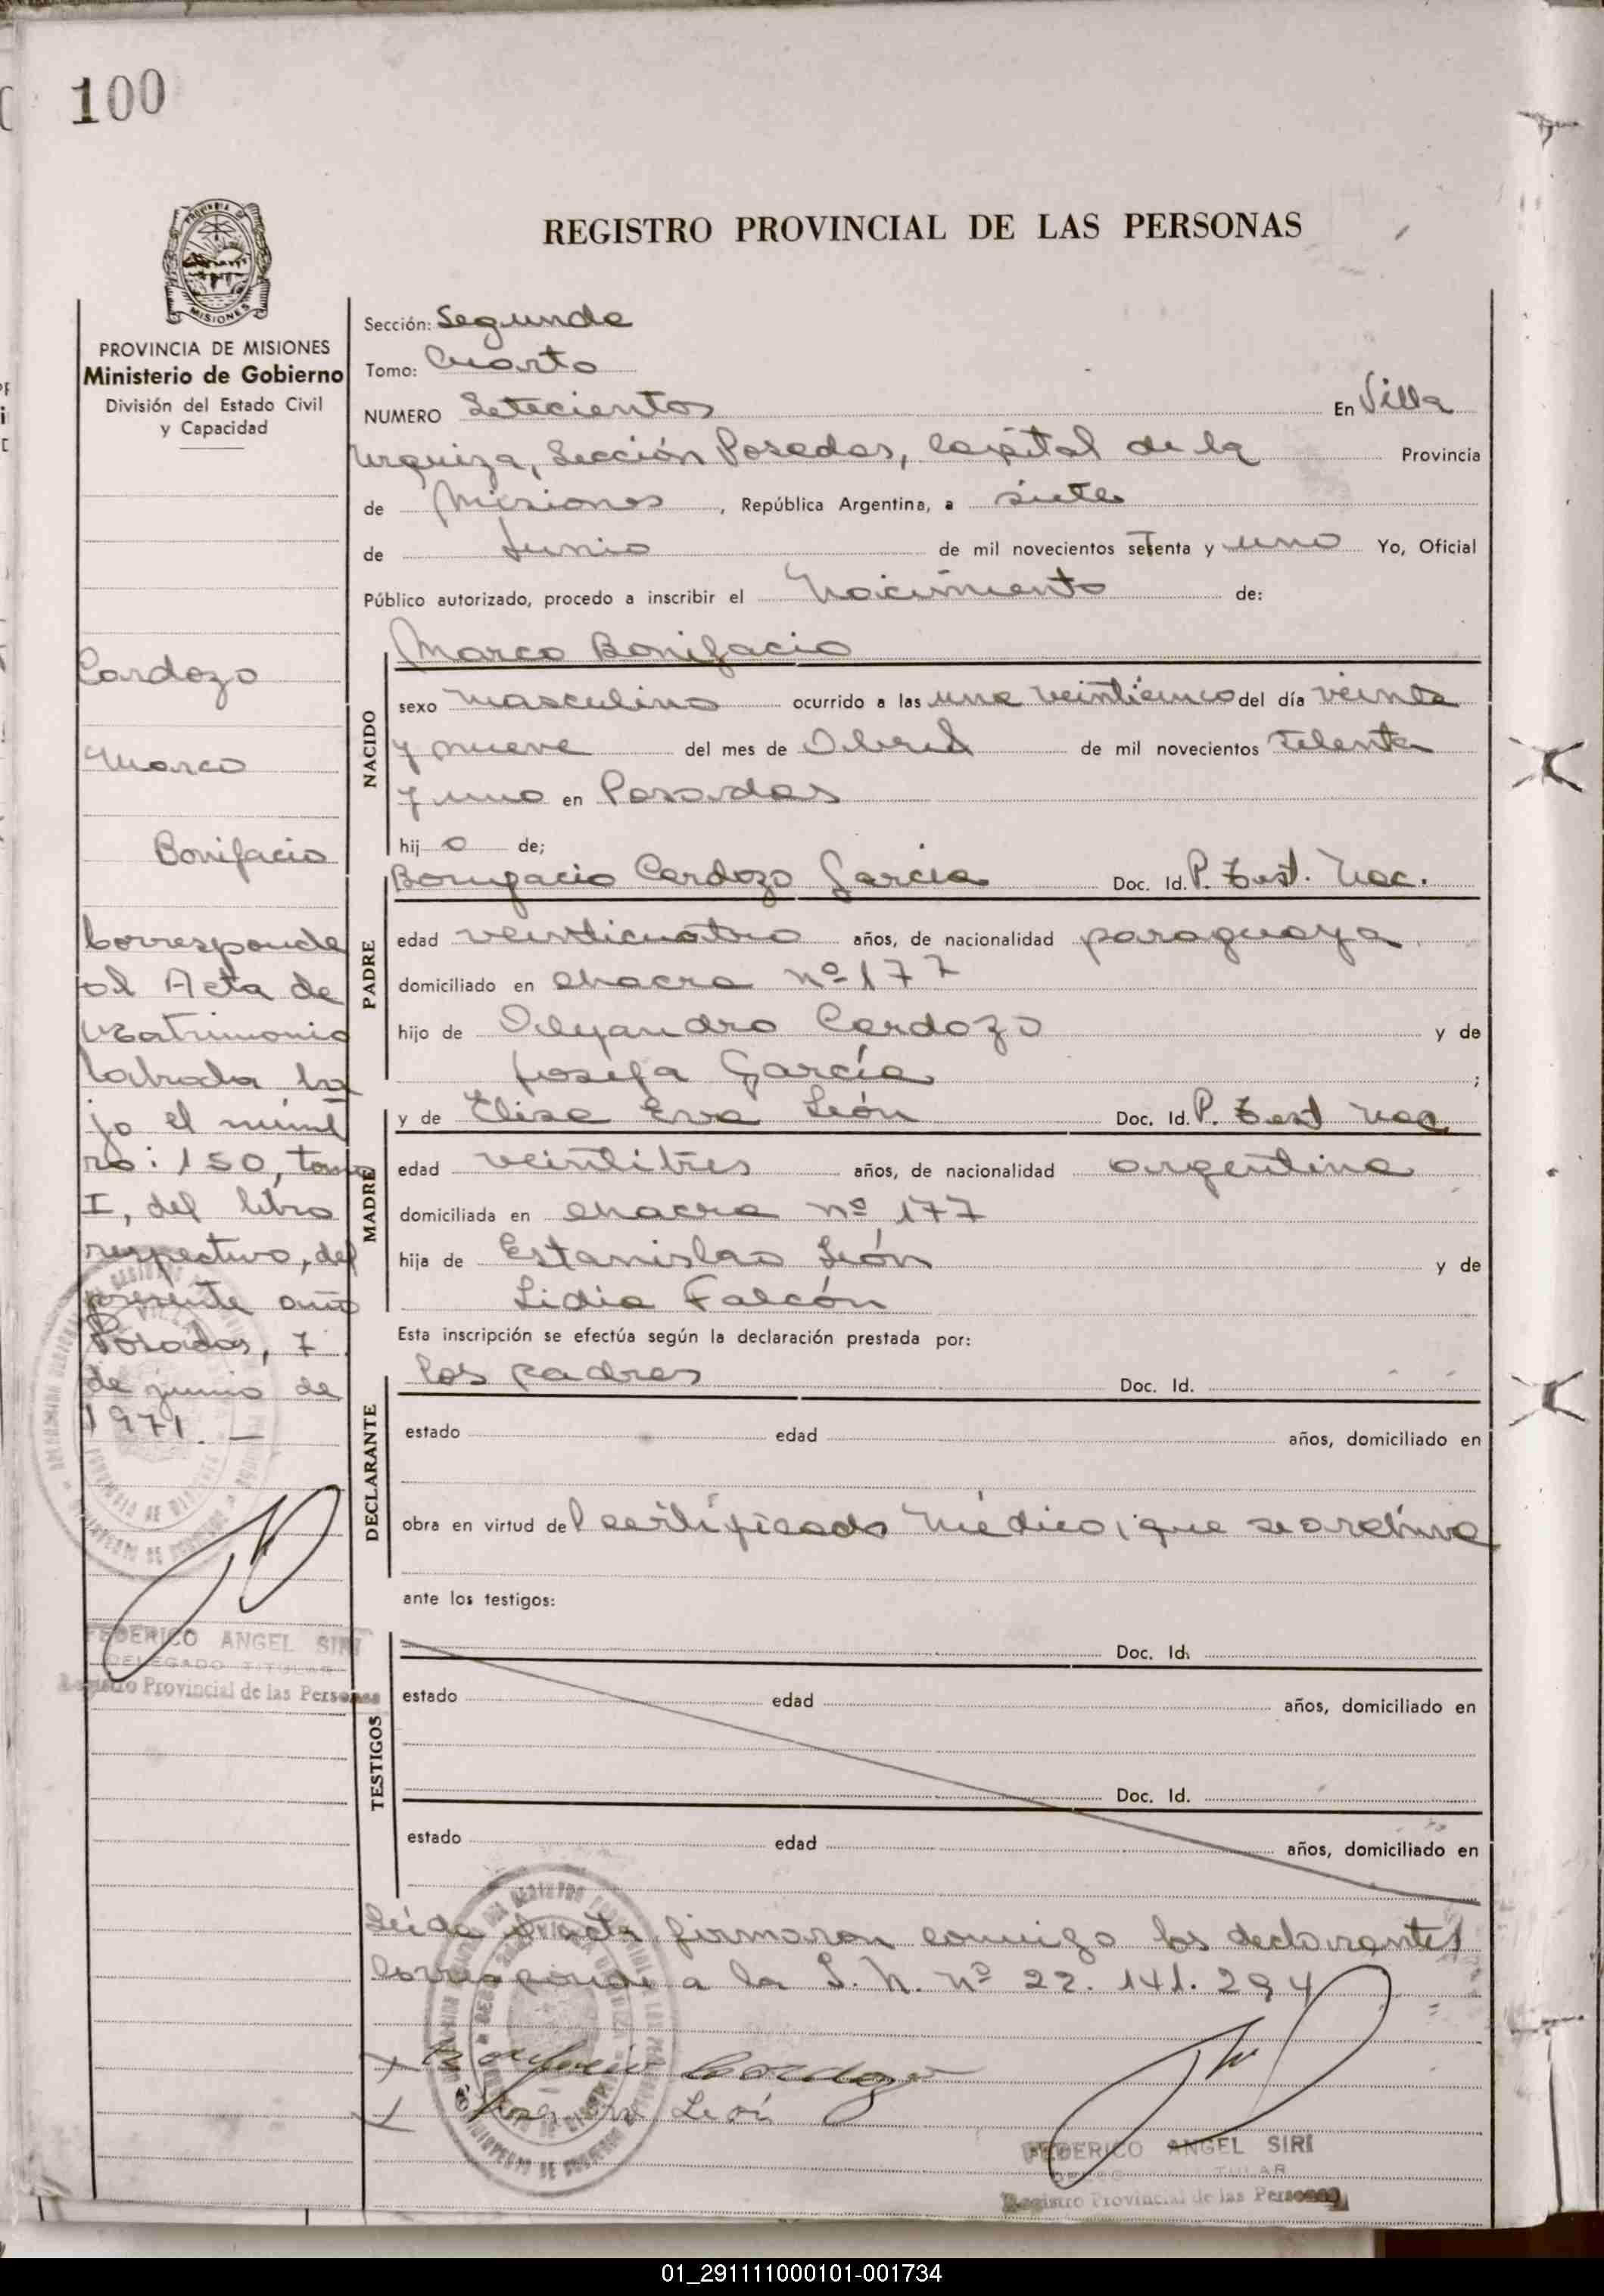 100
REGISTRO PROVINCIAL DE LAS PERSONAS
PROVINCIA DE
MISIONES
PROVINCIA DE MISIONES
Ministerio de Gobierno
División del Estado Civil
y Capacidad
Cardozo
Marco
Bonifacio
Corresponde
al Acta de
Matrimonio
labrada ba
jo el núme
ro: 150, tomo
I, del libro
respectivo, del
presente año
Posadas, 7
de junio de
1971. —
FEDERICO ANGEL SIRI
DELEGADO TITULAR
Registro Provincial de las Personas
Sección: Segunda
Tomo: Cuarto
NUMERO Setecientos En Villa
Urquiza, Sección Posadas, Capital de la Provincia
de Misiones, República Argentina, a siete
de Junio de mil novecientos setenta y uno Yo, Oficial
Público autorizado, procedo a inscribir el Nacimiento de:
Marco Bonifacio
NACIDO
sexo masculino ocurrido a las una veinticinco del día veinte
y nueve del mes de Abril de mil novecientos setenta
y uno en Posadas
hij o de;
Bonifacio Cardozo García Doc. Id. P. Test. Nac.
PADRE
edad veinticuatro años, de nacionalidad paraguaya
domiciliado en chacra nº 177
hijo de Alejandro Cardozo y de
Josefa García ;
y de Elisa Eva León Doc. Id. P. Test Nac.
MADRE
edad veintitres años, de nacionalidad argentina
domiciliada en chacra nº 177
hija de Estanislao León y de
Lidia Falcón
Esta inscripción se efectúa según la declaración prestada por:
los padres Doc. Id.
DECLARANTE
estado edad años, domiciliado en
obra en virtud del certificado médico, que se archiva
ante los testigos:
Doc. Id.
TESTIGOS
estado edad años, domiciliado en
Doc. Id.
estado edad años, domiciliado en
Leída el acta firmaron conmigo los declarantes
Corresponde a la L.M. nº 22.141.294
Bonifacio Cardozo
León
FEDERICO ANGEL SIRI
Registro Provincial de las Personas
01_291111000101-001734